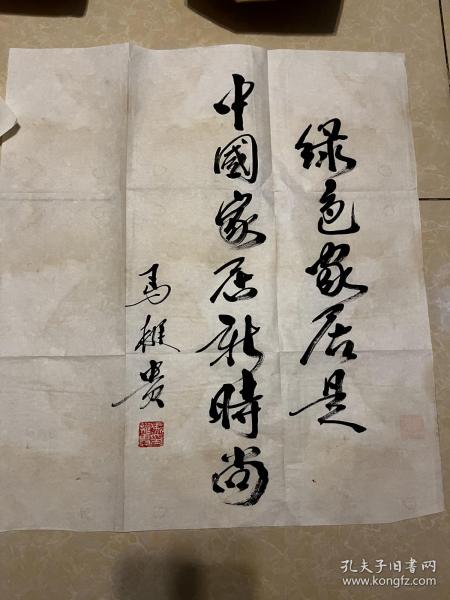 绿色家居是
中國家居新時尚
馬椎贵
孔夫子旧书网
www.kongfz.com